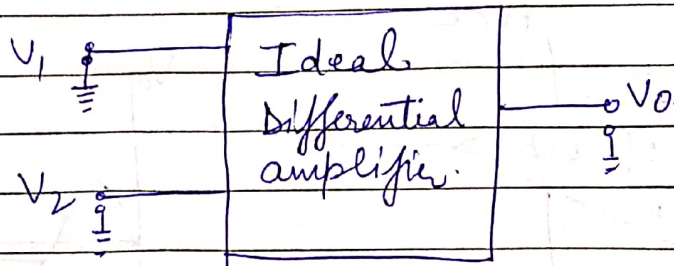 V1
Ideal
Differential
amplifier.
V0
V2